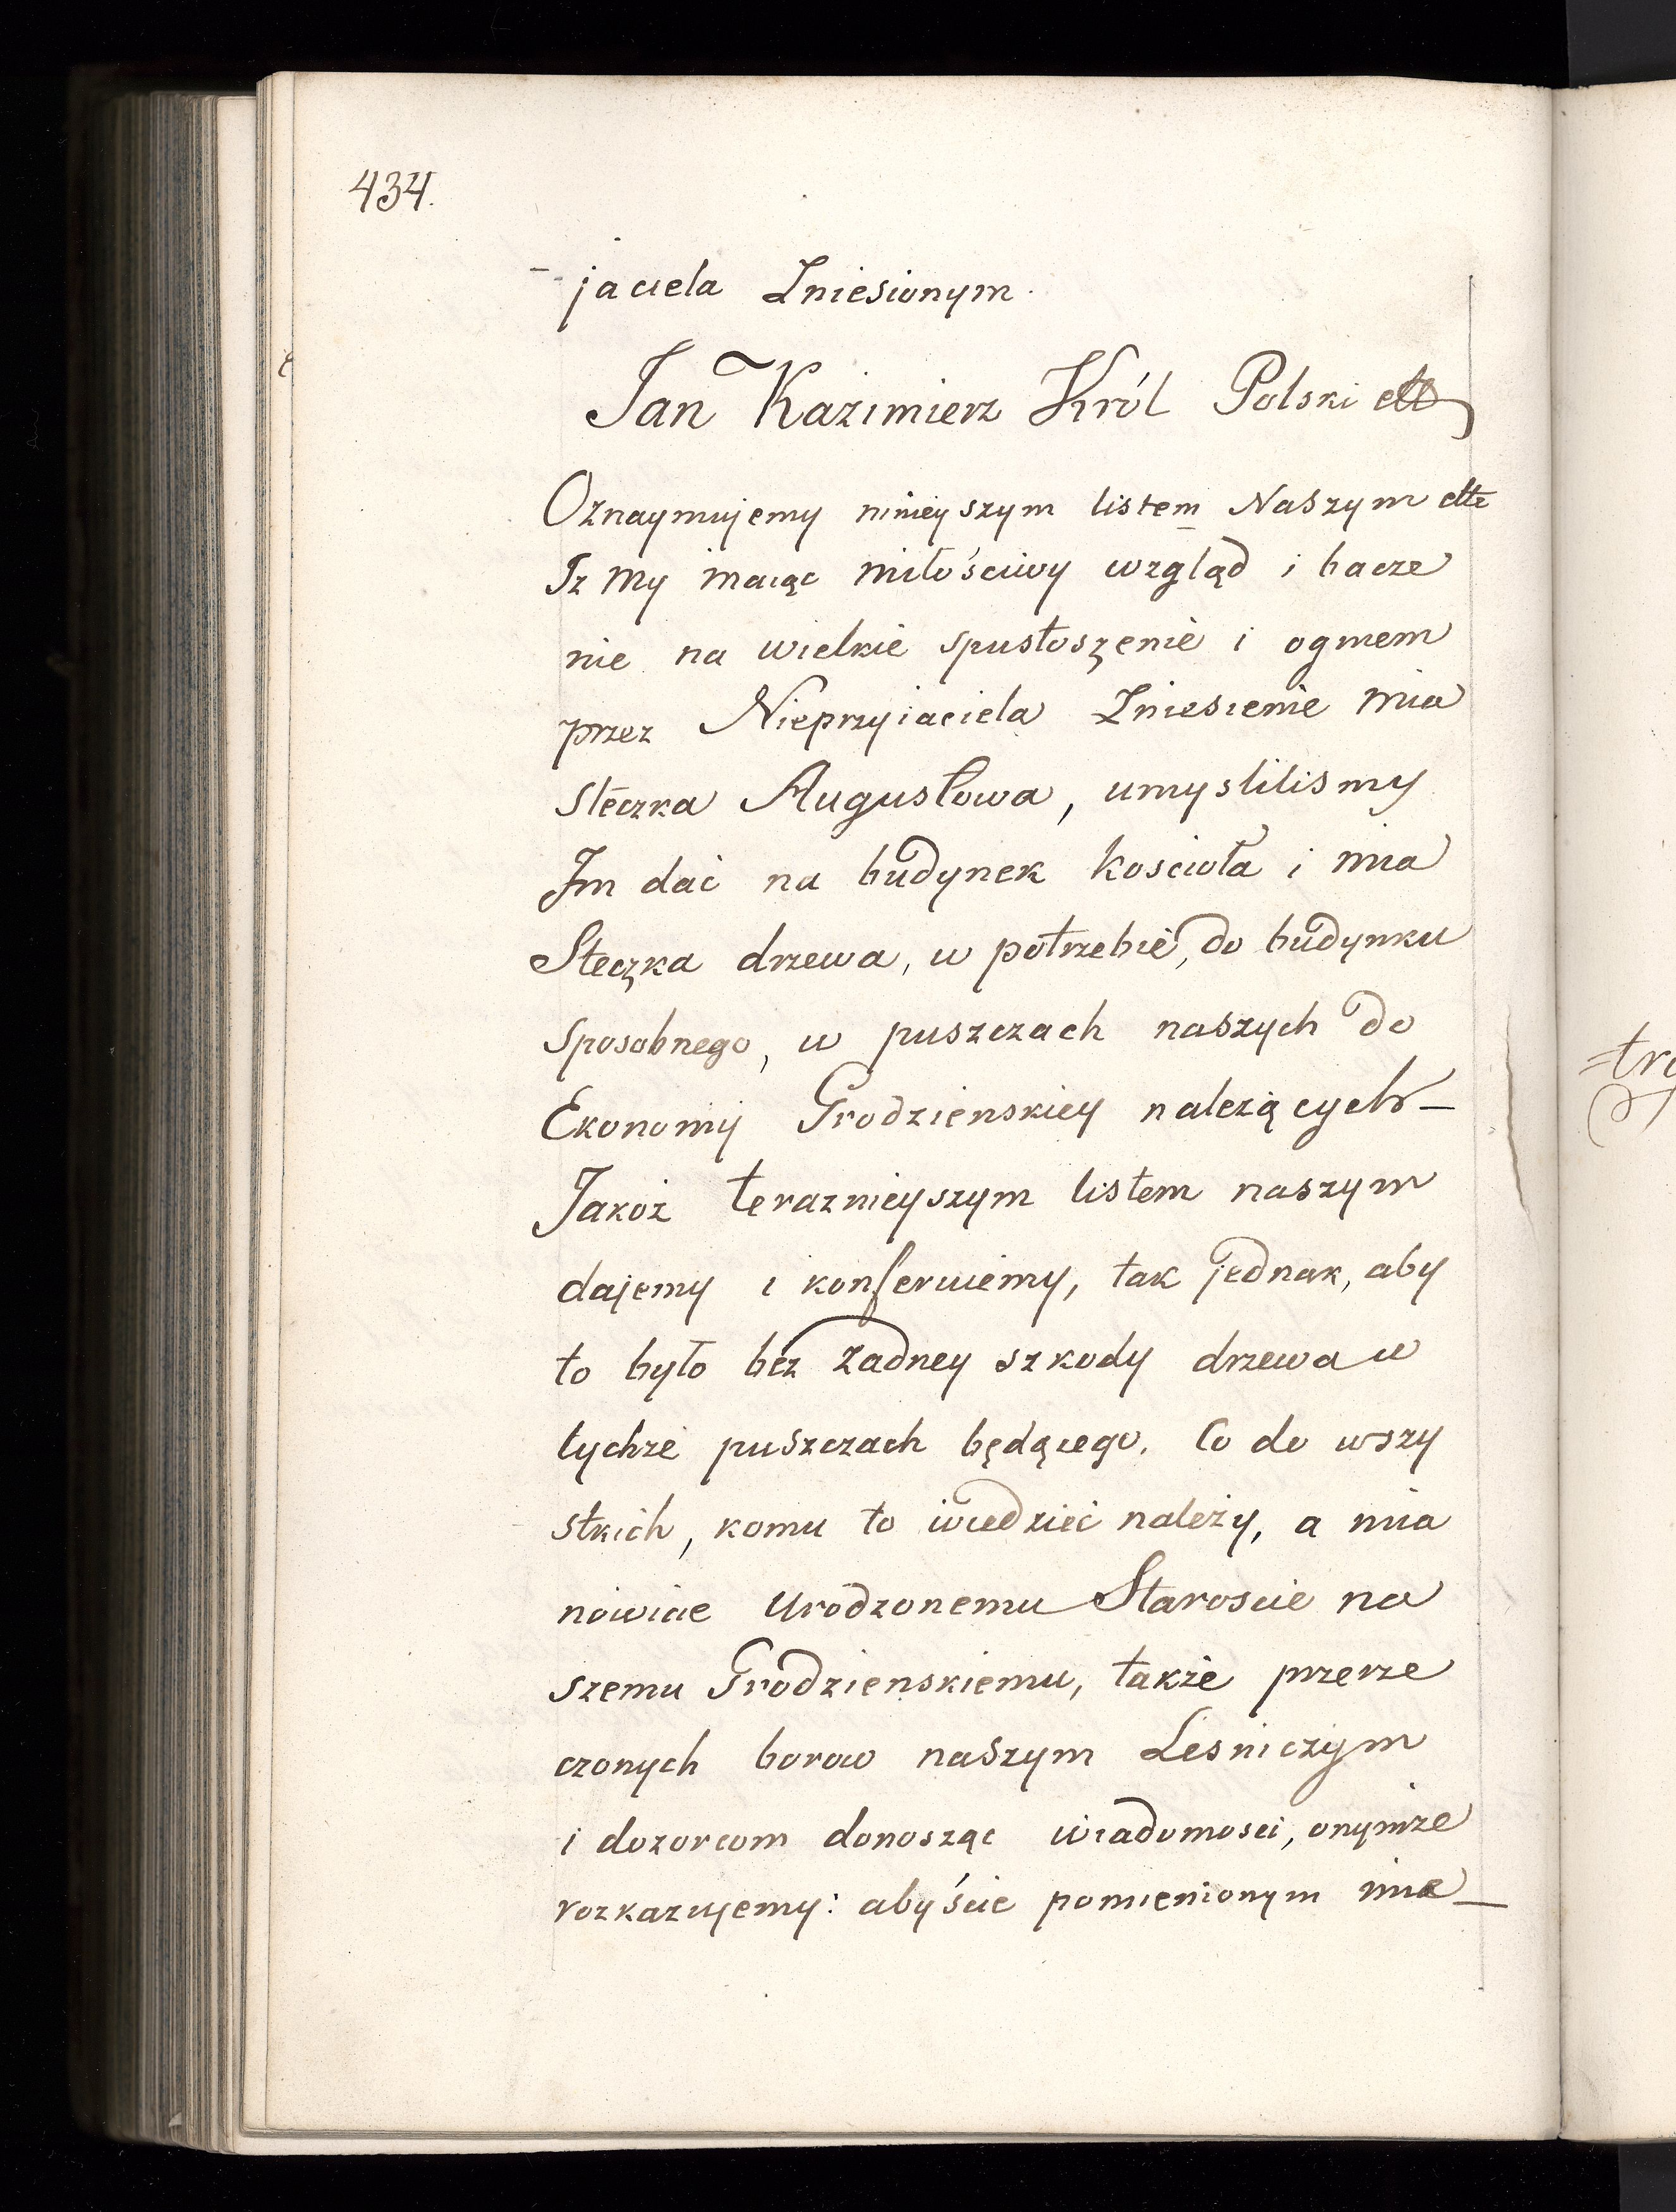 434.
- jaciela Zniesionym.
Jan Kazimierz Król Polski etc
Oznaymujemy ninieyszym listem Naszym etc
Iz My maiąc miłościwy wzgląd i bacze
nie na wielkie spustoszenie i ogniem
przez Nieprzyiaciela Zniesienie mia
steczka Augustowa, umyslilismy
Im dać na budynek koscioła i mia
steczka drzewa, w potrzebie, do budynku
sposobnego, w puszczach naszych do
Ekonomij Grodzienskiey należących –
Jakoż teraznieyszym listem naszym
dajemy i konferuiemy, tak jednak, aby
to było bez żadney szkody drzewa w
tychże puszczach będącego. Co do wszy
stkich, komu to wiedzieć należy, a mia
nowicie Urodzonemu Staroscie na
szemu Grodzienskiemu, także przerze
czonych borow naszym Lesniczym
i dozorcom donosząc wiadomosci, onymże
rozkazujemy: abyście pomienionym mia –
=tr